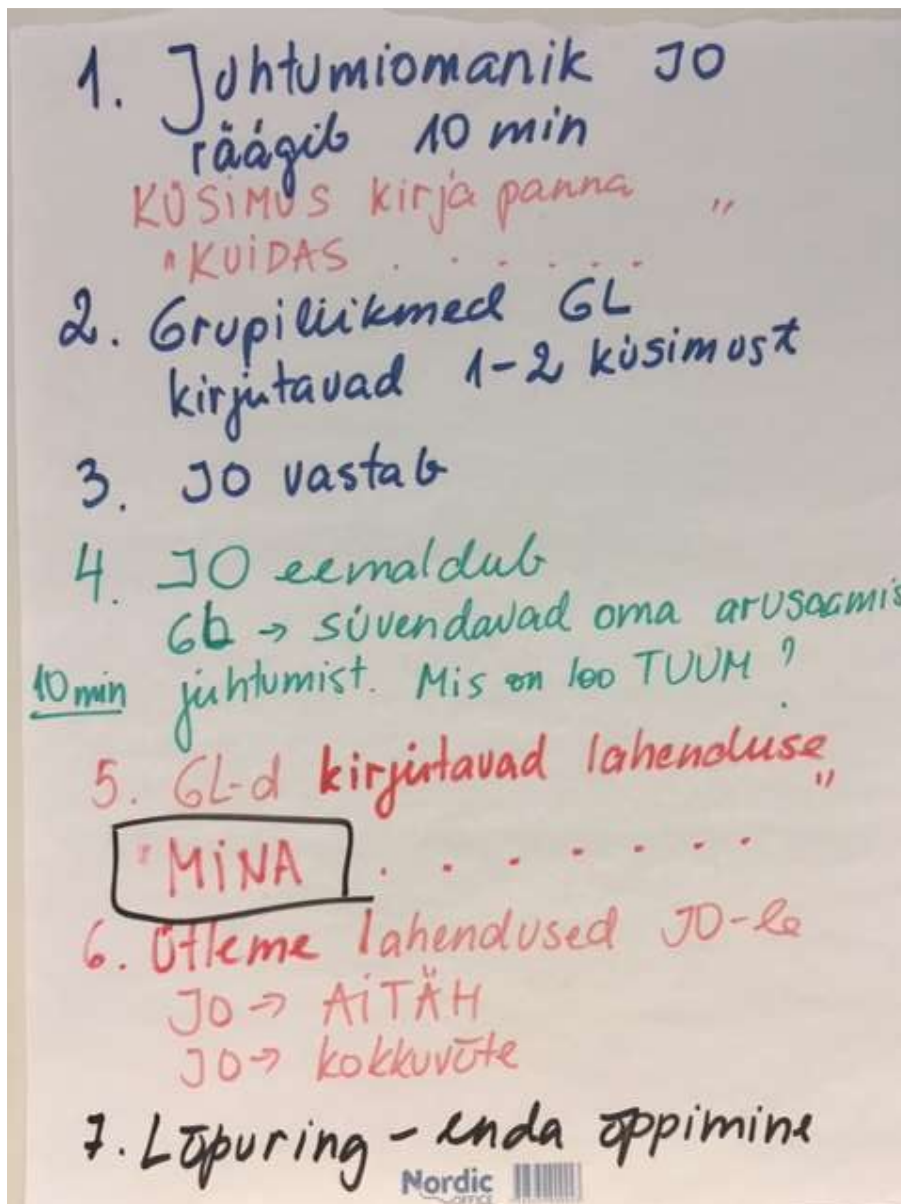 1. Juhtumiomanik JO
räägib 10 min
KÜSIMUS kirja panna "
"KUIDAS . . . . . .
2. Grupiliikmed GL
kirjutavad 1-2 küsimust
3. JO vastab
4. JO eemaldub
GL → süvendavad oma arusaamis
10 min juhtumist. Mis on loo TUUM?
5. GL-d kirjutavad lahenduse "
"MINA . . . . . . .
6. Ütleme lahendused JO-le
JO → AITÄH
JO → kokkuvõte
7. Lõpuring - enda õppimine
Nordic
OFFICE